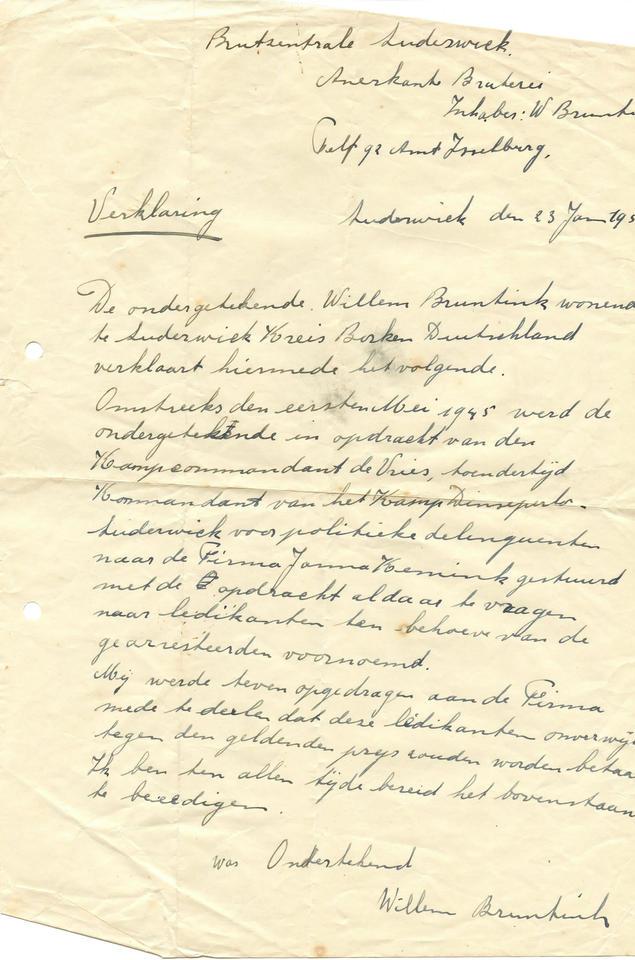 Brutzentrale Suderwick.
Anerkante Bruterei
Inhaber: W Brunti
Telf 92 Amt Isselburg,
Verklaring
Suderwick den 23 Jan 195
De ondergetekende. Willem Bruntink wonend
te Suderwick Kreis Borken Deutschland
verklaart hiermede het volgende.
Omstreeks den eersten Mei 1945 werd de
ondergetekende in opdracht van den
Kampcommandant de Vries, toendertijd
Kommandant van het Kamp Dinxperlo-
Suderwick voor politieke delinquenten
naar de Firma Janna Kemink gestuurd
met de opdracht aldaar te vragen
naar ledikanten ten behoeve van de
gearresteerden voornoemd.
Mij werde teven opgedragen aan de Firma
mede te deelen dat deze ledikanten onverwij
tegen den geldenden prijs zouden worden betaa
Ik ben ten allen tijde bereid het bovenstaan
te beeedigen.
was Ondertekend
Willem Bruntink